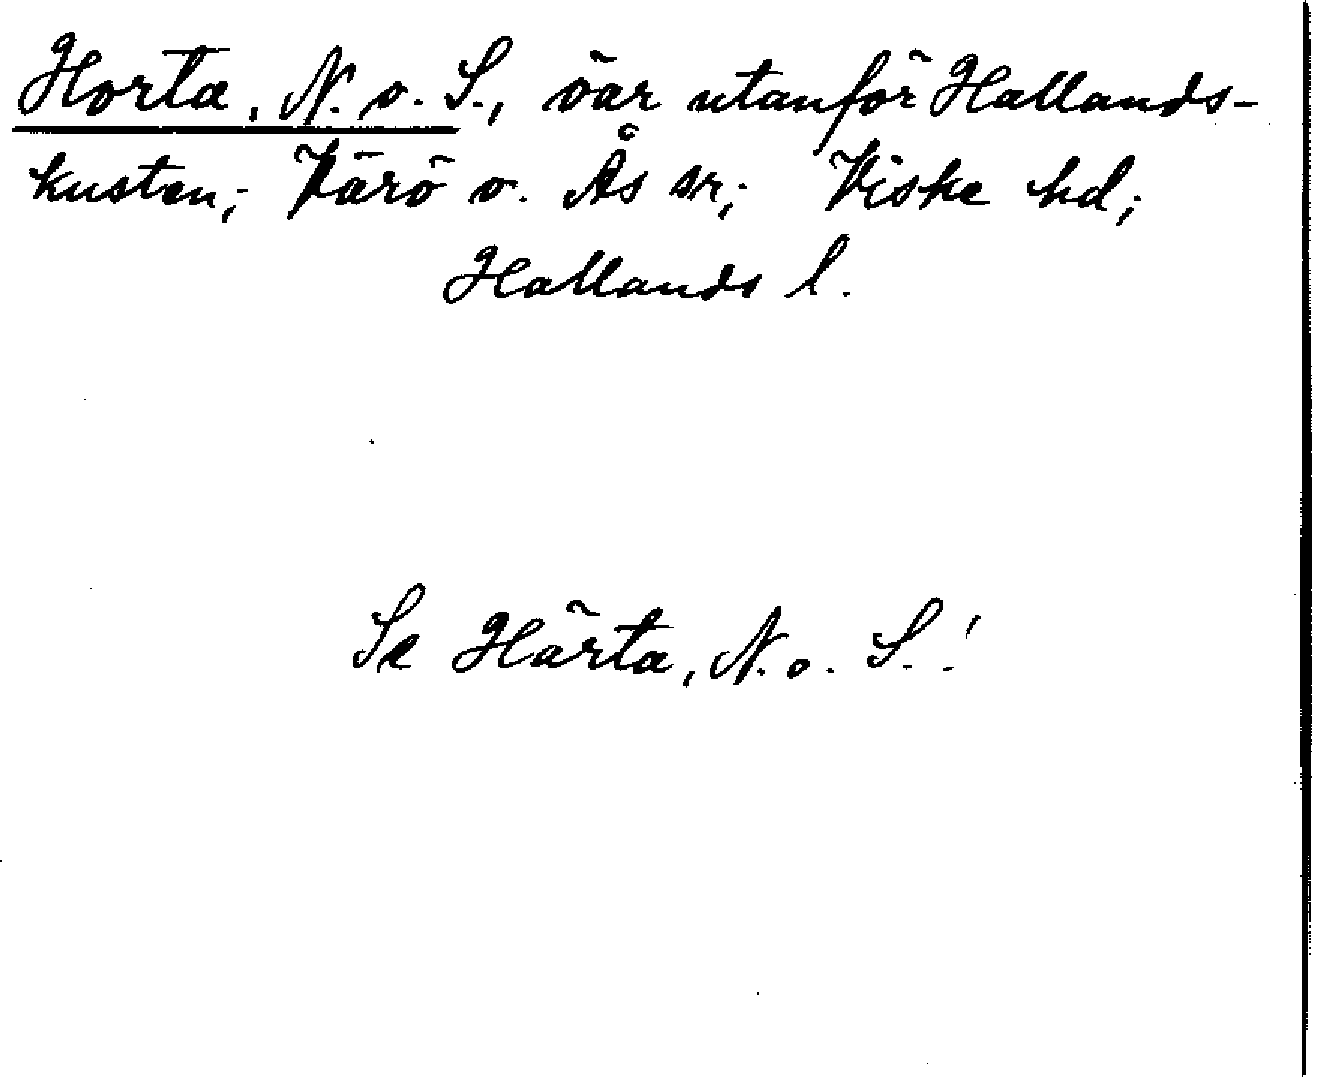 Horta, N. o. S., öar utanför Hallands-
kusten; Värö o. Ås sn; Viske hd;
Hallands l.
Se Härta, N. o. S.!